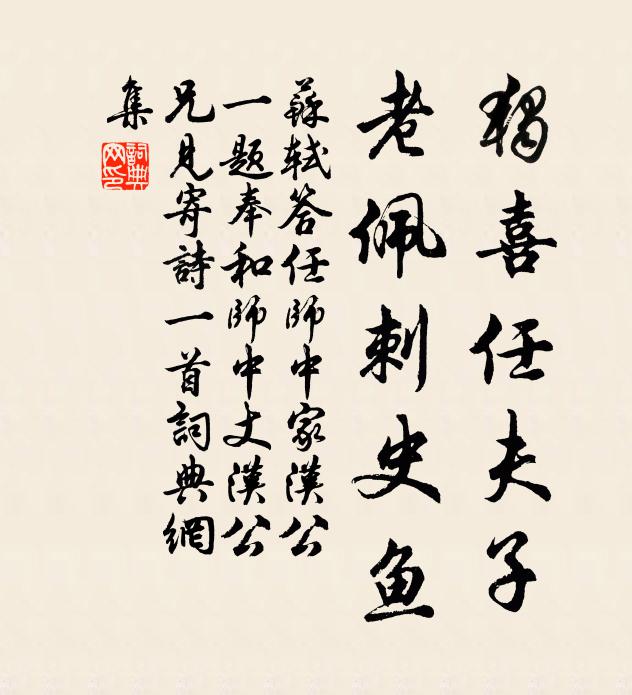 獨喜任夫子
老佩刺史鱼
蘇軾答任師中家漢公
一题奉和師中丈漢公
兄見寄詩一首詞典網
集
詞典網印